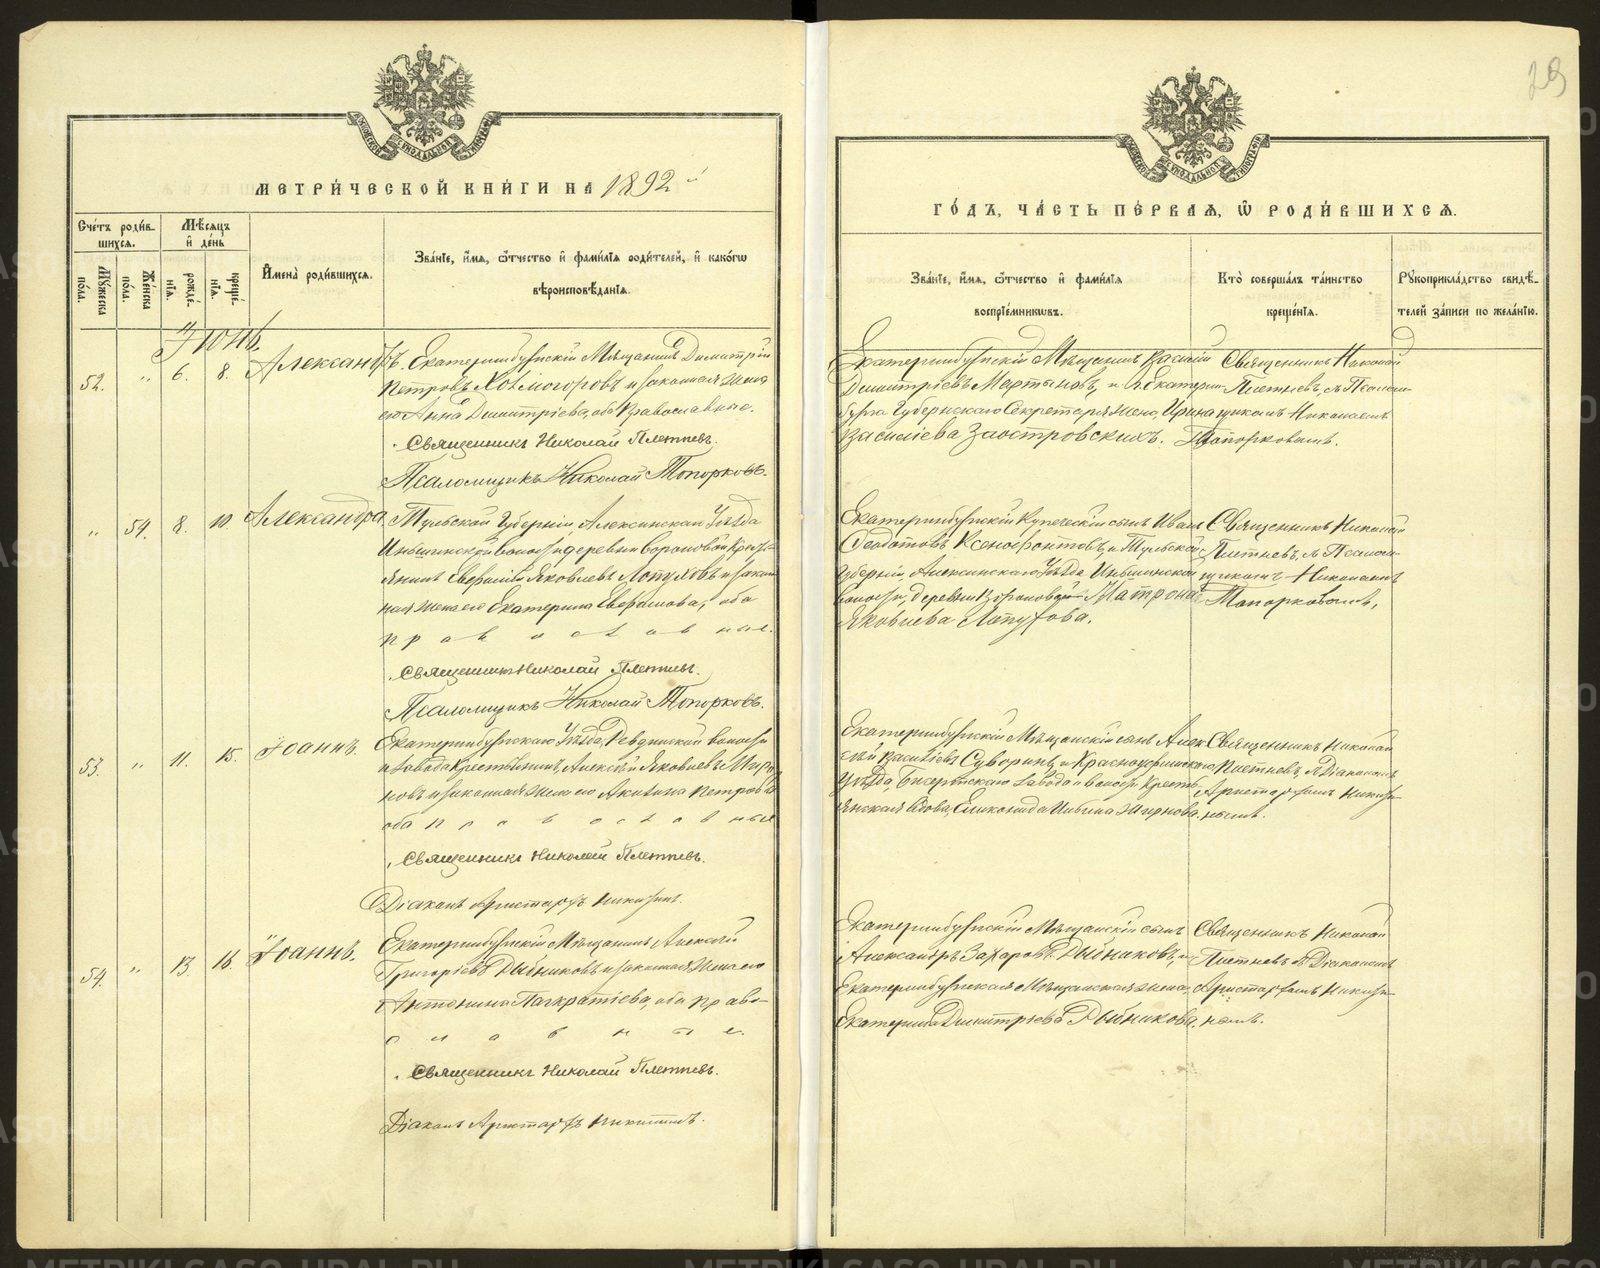 МЕТРИЧЕСКОЙ КНИГИ НА 1892 й
Счетъ родившихся.
Мѣсяцъ и день
Мужеска пола.
Женска пола.
рожденія.
крещенія.
Имена родившихся.
Званіе, имя, отчество и фамилія родителей, и какого
вѣроисповѣданія.
Іюнь.
52. " 6. 8. Александръ.
Екатеринбургскій Мѣщанинъ Димитрій
Петровъ Холмогоровъ и законная жена
его Анна Димитріева, оба православные.
Священникъ Николай Плетневъ.
Псаломщикъ Николай Топорковъ.
" 54. 8. 10. Александра.
Тульской Губерніи Алексинскаго Уѣзда
волости деревни Кресть-
янинъ Яковлевъ Лопуховъ и закон-
ная жена его Екатерина оба
православные.
Священникъ Николай Плетневъ.
Псаломщикъ Николай Топорковъ.
53. " 11. 15. Іоаннъ.
Екатеринбургскаго Уѣзда, Ревдинской волости
и завода Крестьянинъ, Алексѣй Яковлевъ
и законная жена его Акилина Петрова
оба православные
Священникъ Николай Плетневъ.
Діаконъ Аристархъ Никитинъ.
54. " 13. 16. Іоаннъ.
Екатеринбургскій Мѣщанинъ Алексѣй
Григорьевъ Рыбниковъ и законная жена его
Антонина Панкратіева, оба право-
славные.
Священникъ Николай Плетневъ.
Діаконъ Аристархъ Никитинъ.
29
ГОДЪ, ЧАСТЬ ПЕРВАЯ, Ѡ РОДИВШИХСЯ.
Званіе, имя, отчество и фамилія
воспріемниковъ.
Кто совершалъ таинство
крещенія.
Рукоприкладство свидѣ-
телей записи по желанію.
Екатеринбургскій Мѣщанинъ Василій
Димитріевъ Мартыновъ, и Екатерин-
бурга Губернскаго Секретаря жена, Ирина
Васильева Заостровскихъ.
Священникъ Николай
Плетневъ, съ Псалом-
щикомъ Николаемъ
Топорковымъ.
Екатеринбургскій Купеческій сынъ Иванъ
Ксенофонтовъ, и Тульской
Губерніи, Алексинскаго Уѣзда
волости, деревни Матрона
Яковлева Лопухова.
Священникъ Николай
Плетневъ, съ Псалом-
щикомъ Николаемъ
Топорковымъ,
Екатеринбургскій Мѣщанскій сынъ Алек-
сѣй Васильевъ Суворинъ, и Красноуфимскаго
Уѣзда, Бисертскаго завода и волости Кресть-
янская вдова,
Священникъ Николай
Плетневъ, съ Діакономъ
Аристархомъ Никити-
нымъ.
Екатеринбургскій Мѣщанскій сынъ
Александръ Захаровъ Рыбниковъ, и
Екатеринбургская Мѣщанская жена,
Екатерина Димитріева Рыбникова.
Священникъ Николай
Плетневъ съ Діакономъ
Аристархомъ Никити-
нымъ.